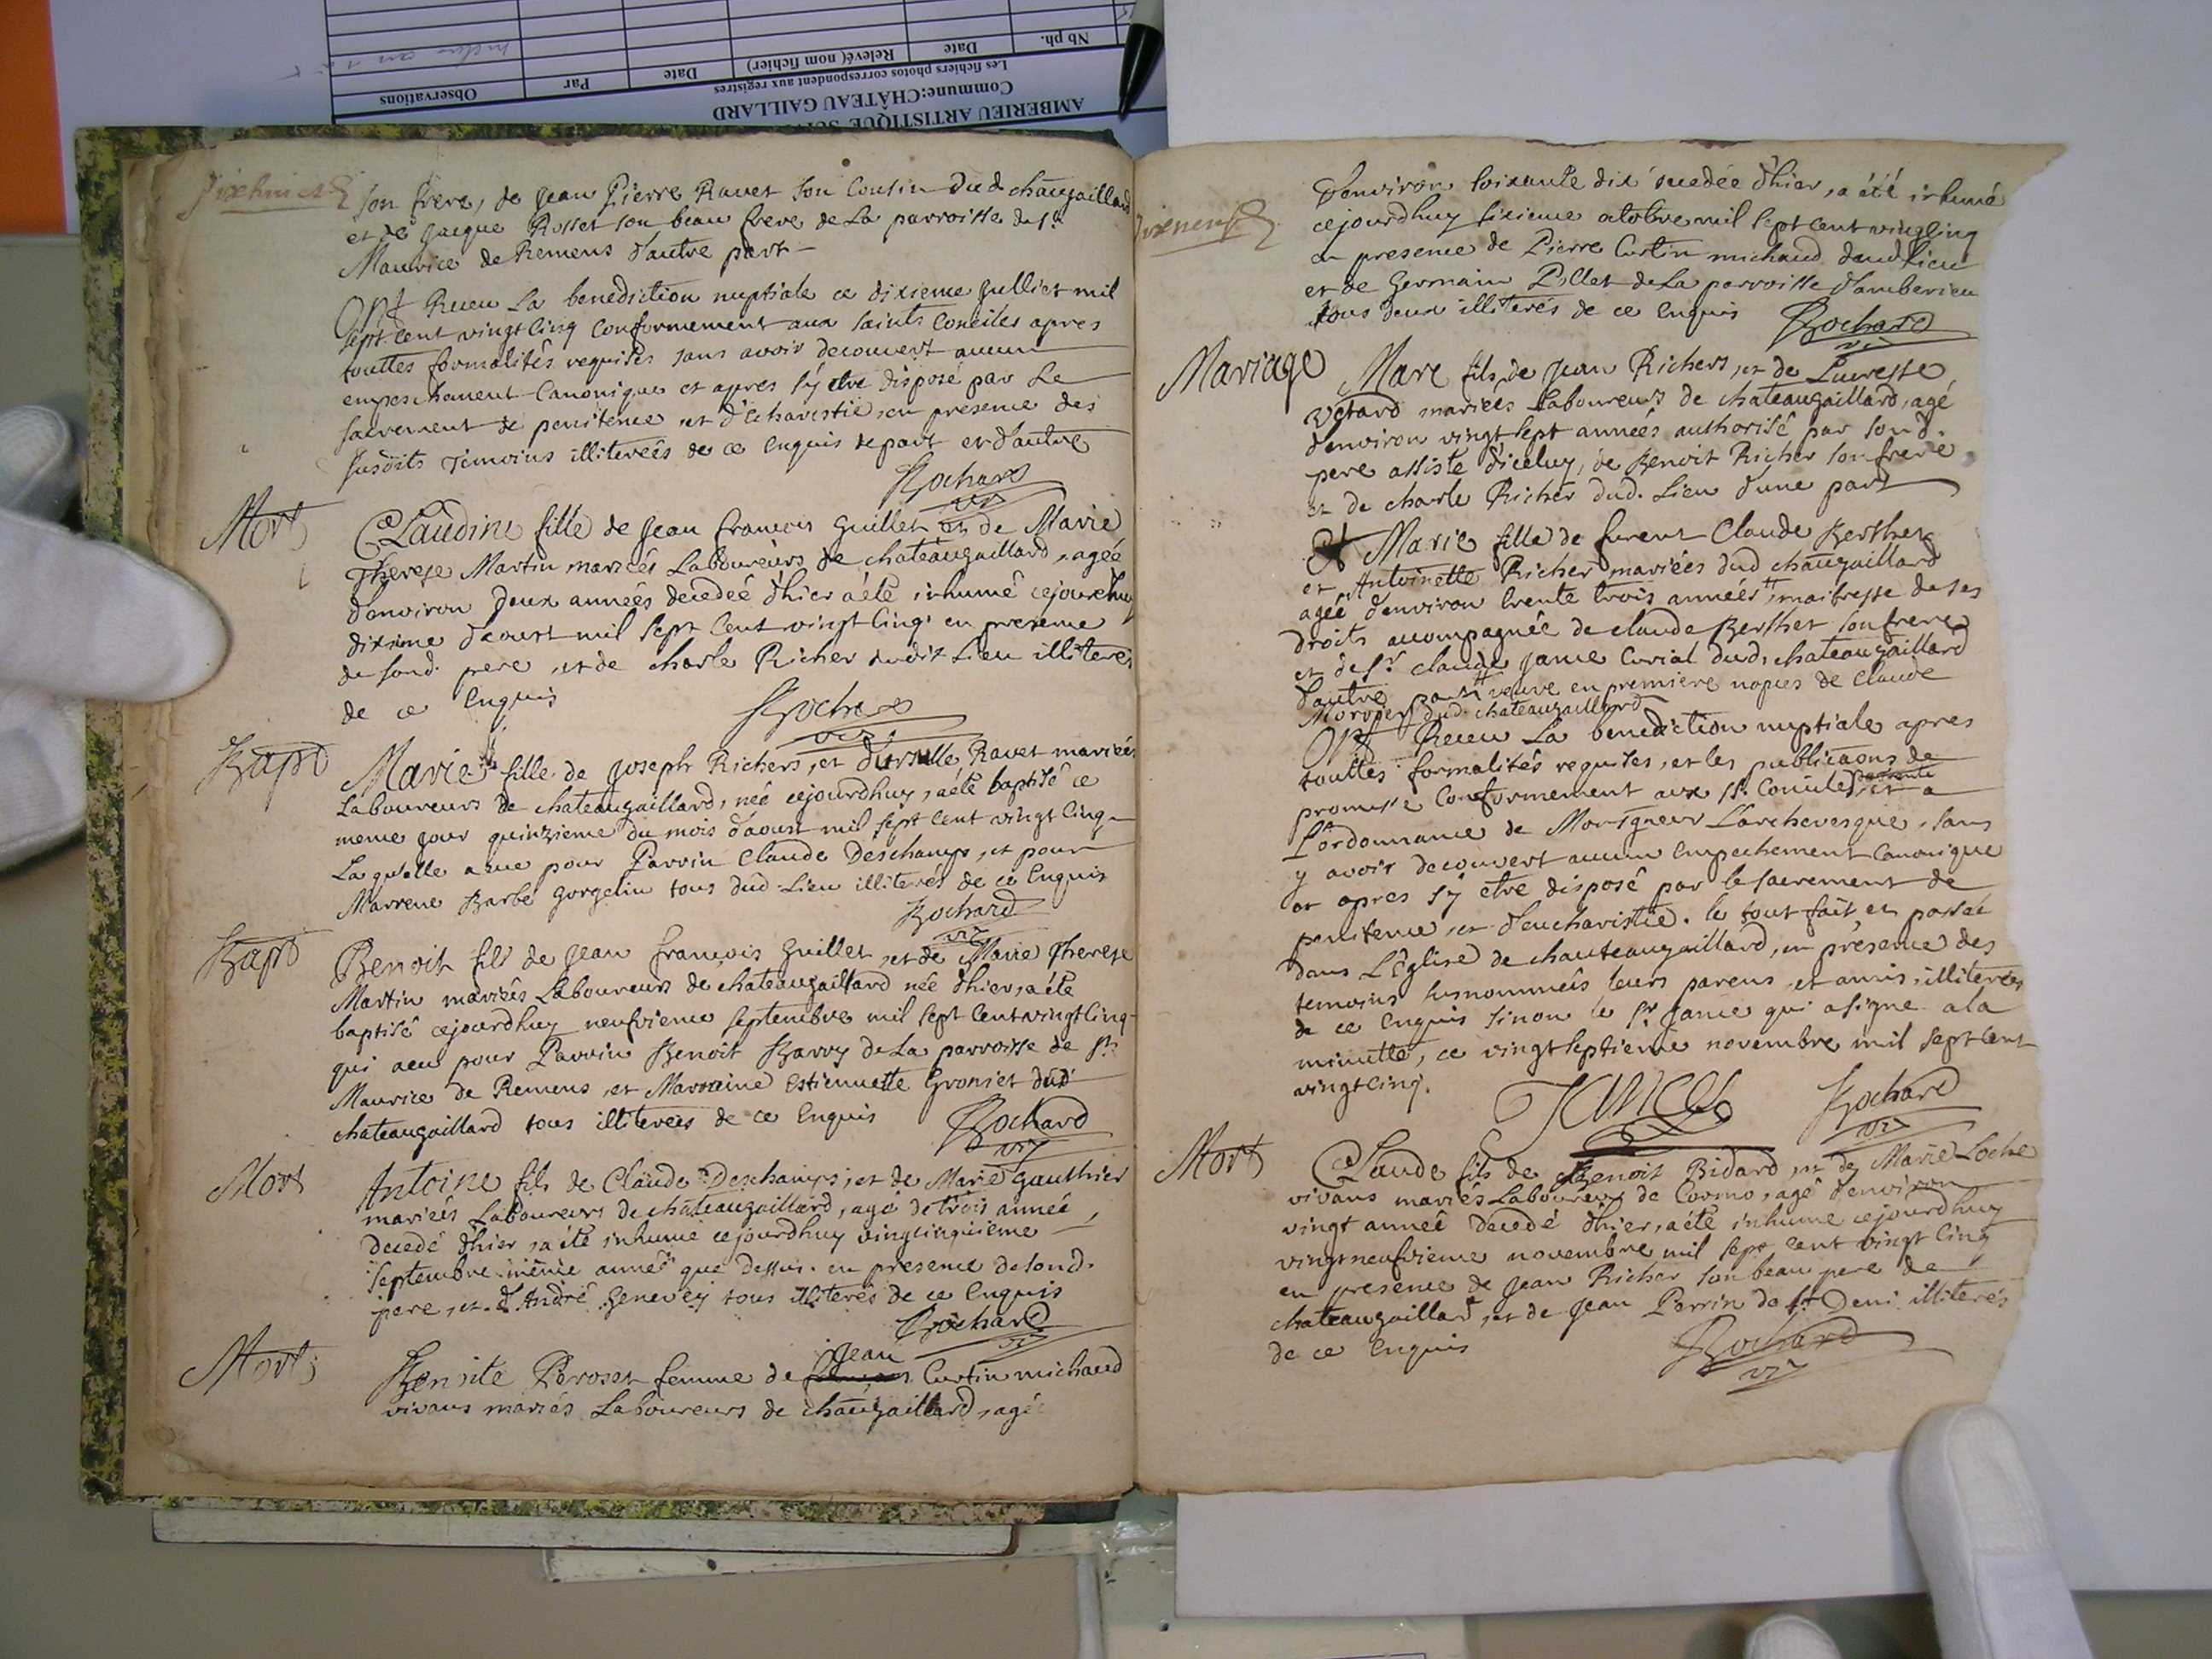 Observations
Par
Date
Relevé (nom fichier)
Date
Nb ph.
Les fichiers photos correspondent aux registres
Commune: CHÂTEAU GAILLARD
AMBERIEU ARTISTIQUE
Dixhuict
son frere, de Jean Pierre Ravet son Cousin dud chaûgaillard
et de Jacque Rosset son beau frere de La parroisse de st
Maurice de Remens d'autre part
Ont Receu La benediction nuptiale ce dixieme Julliet mil
sept cent vingt cinq conformement aux saints Conciles apres
touttes formalités requises sans avoir decouvert aucun
empeschement Canonique et apres s'y etre disposé par Le
sacrement de penitence et d'Echaristie, en presence des
susdits temoins illitereés de ce Enquis de part et d'autre
Rochard
vic
Mort
Claudine fille de Jean francois Guillet et de Marie
Therese Martin mariées Laboureurs de chateaugaillard, agée
d'environ deux années decedée d'hier a été inhumé cejourdhuy
dixieme d'aoust mil sept cent vingt cinq en presence
de sond. pere, et de charle Richer dudit Lieu illiterés
de ce Enquis
Rochard
vic
Bapt
Marie fille de Joseph Richers, et d'ursulle Ravet mariées
Laboureurs de chateaugaillard, née cejourdhuy, a été baptisé ce
meme jour quinzieme du mois d'aoust mil sept cent vingt cinq
La qu'elle a eue pour Parrin Claude Deschamps, et pour
Marrene Barbe Gorgelin tous dud. Lieu illiterés de ce Enquis
Rochard
vic
Bapt
Benoit fils de Jean francois Guillet, et de Marie Therese
Martin mariées Laboureurs de chateaugaillard née d'hier, a été
baptisé cejourdhuy neufvieme septembre mil sept cent vingt cinq
qui a eu pour Parrin Benoit Barry de La parroisse de st
Maurice de Remens, et Marraine Estiennette Groniet dud
chateaugaillard tous illiterées de ce Enquis
Rochard
vic
Mort
Antoine fils de Claude Deschamps, et de Marie Gauthier
mariées Laboureurs de chateaugaillard, agé de trois année,
decedé d'hier, a été inhumé cejourdhuy vingtcinquieme
septembre même année que dessus. en presence de sond.
pere, et d'André Genevey tous illiterés de ce Enquis
Rochard
vic
Mort
Benoite Perosset femme de Jean Curtin michaud
vivans mariés Laboureurs de chaûgaillard, agée
Dixneuf
d'environ soixante dix decedée d'hier, a été inhumé
cejourdhuy sixieme octobre mil sept cent vingt cinq
en presence de Pierre Curtin michaud dud Lieu
et de Germain Pillet de La parroisse d'amberieu
tous deux illiterés de ce Enquis
Rochard
vic
Mariage
Marc fils de Jean Richers, et de Lucresse
Vetard mariées Laboureurs de chateaugaillard, agé
d'environ vingt sept années authorisé par sond.
pere assisté d'iceluy, de Benoit Richer son frere
et de charle Richer dud. Lieu d'une part
Et Marie fille de furent Claude Berthet
et Antoinette Richer mariées dud chaûgaillard
agée d'environ trente trois années, # maitresse de ses
droits accompagnée de claude Berthet son frere
et de sr claude Jance Curial dud. chateaugaillard
d'autre part # veuve en premiere nopces de Claude
Morvoet dud. chateaugaillard
Ont Receu La benediction nuptiale apres
touttes formalités requises, et les publicaons de
promesse Conformement aux st. Conciles et a
L'ordonnance de Monsgneur L'archevesque, sans
y avoir decouvert aucun Empechement Canonique
et apres s'y etre disposé par le sacrement de
penitence et d'eucharistie. le tout fait et passée
dans L'Eglise de chauteaugaillard, en présence des
temoins susnommés leurs parens et amis, illiterées
de ce Enquis sinon le sr Jance qui a signe a la
minutte, ce vingt septieme novembre mil sept cent
vingt cinq.
JANCE
Rochard
vic
Mort
Claude fils de Benoit Bidard, et de Marie Loche
vivans mariés Laboureurs de Cormo, agé d'environ
vingt année decedé d'hier, a été inhume cejourdhuy
vingt neufvieme novembre mil sept cent vingt cinq
en presence de Jean Richer son beau pere de
chateaugaillard, et de Jean Perrin de st Deni illiterés
de ce Enquis
Rochard
vic